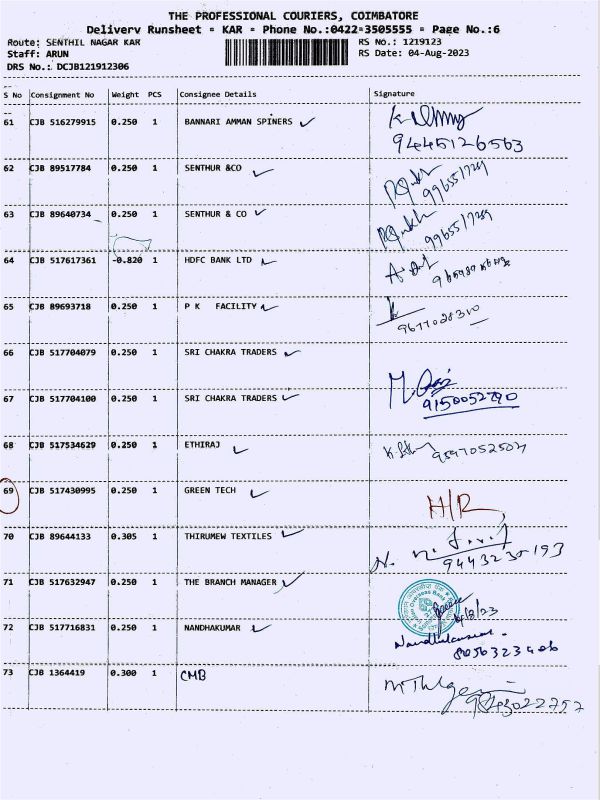 THE PROFESSIONAL COURIERS, COIMBATORE
Delivery Runsheet - KAR - Phone No.:0422-3505555 - Page No.:6
Route: SENTHIL NAGAR KAR
Staff: ARUN
DRS No.: DCJB121912306
RS No.: 1219123
RS Date: 04-Aug-2023
S No Consignment No Weight PCS Consignee Details Signature
61 CJB 516279915 0.250 1 BANNARI AMMAN SPINERS
9445126563
62 CJB 89517784 0.250 1 SENTHUR &CO
9965517289
63 CJB 89640734 0.250 1 SENTHUR & CO
9965517289
64 CJB 517617361 0.820 1 HDFC BANK LTD
65 CJB 89693718 0.250 1 P K FACILITY
9677028310
66 CJB 517704079 0.250 1 SRI CHAKRA TRADERS
67 CJB 517704100 0.250 1 SRI CHAKRA TRADERS
9150052790
68 CJB 517534629 0.250 1 ETHIRAJ
69 CJB 517430995 0.250 1 GREEN TECH H/R
70 CJB 89644133 0.305 1 THIRUMEW TEXTILES
9443230193
71 CJB 517632947 0.250 1 THE BRANCH MANAGER
72 CJB 517716831 0.250 1 NANDHAKUMAR Nandhakumar
73 CJB 1364419 0.300 1 CMB
9843022752